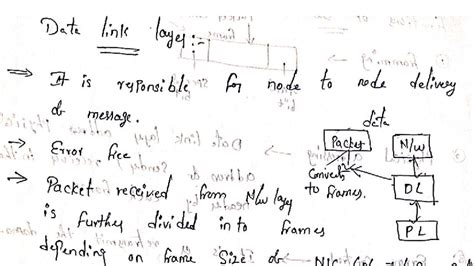 Data link layer :-
⇒ It is responsible for node to node delivery
of message.
→ Error free
⇒ Packet received from N/w layer
is further divided in to frames
depending on frame size of
data
Packet
Converts
to frames.
N/W
DL
PL